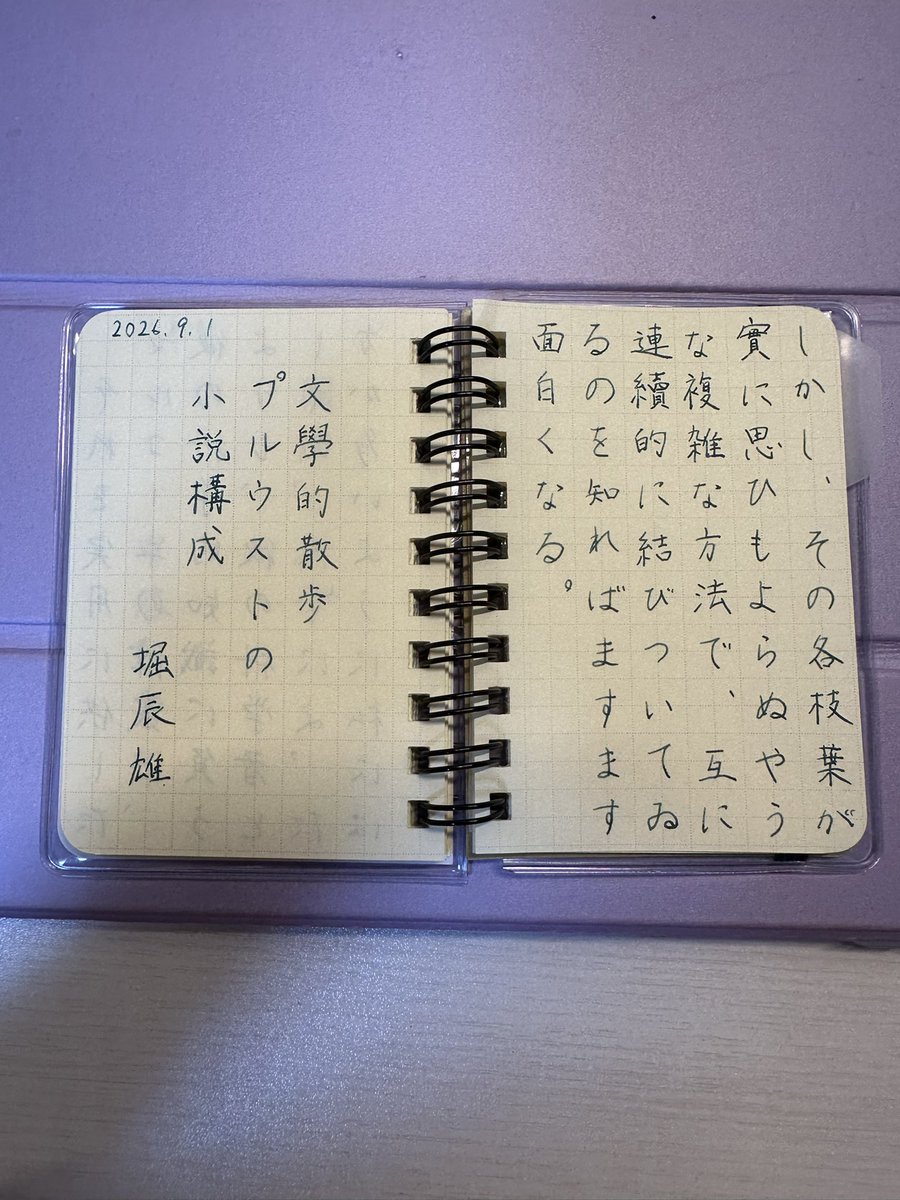 しかし、その各枝葉が
實に思ひもよらぬやう
な複雑な方法で、互に
連續的に結びついてゐ
るのを知ればますます
面白くなる。
2026.9.1
文學的散歩
プルウストの
小説構成
堀辰雄